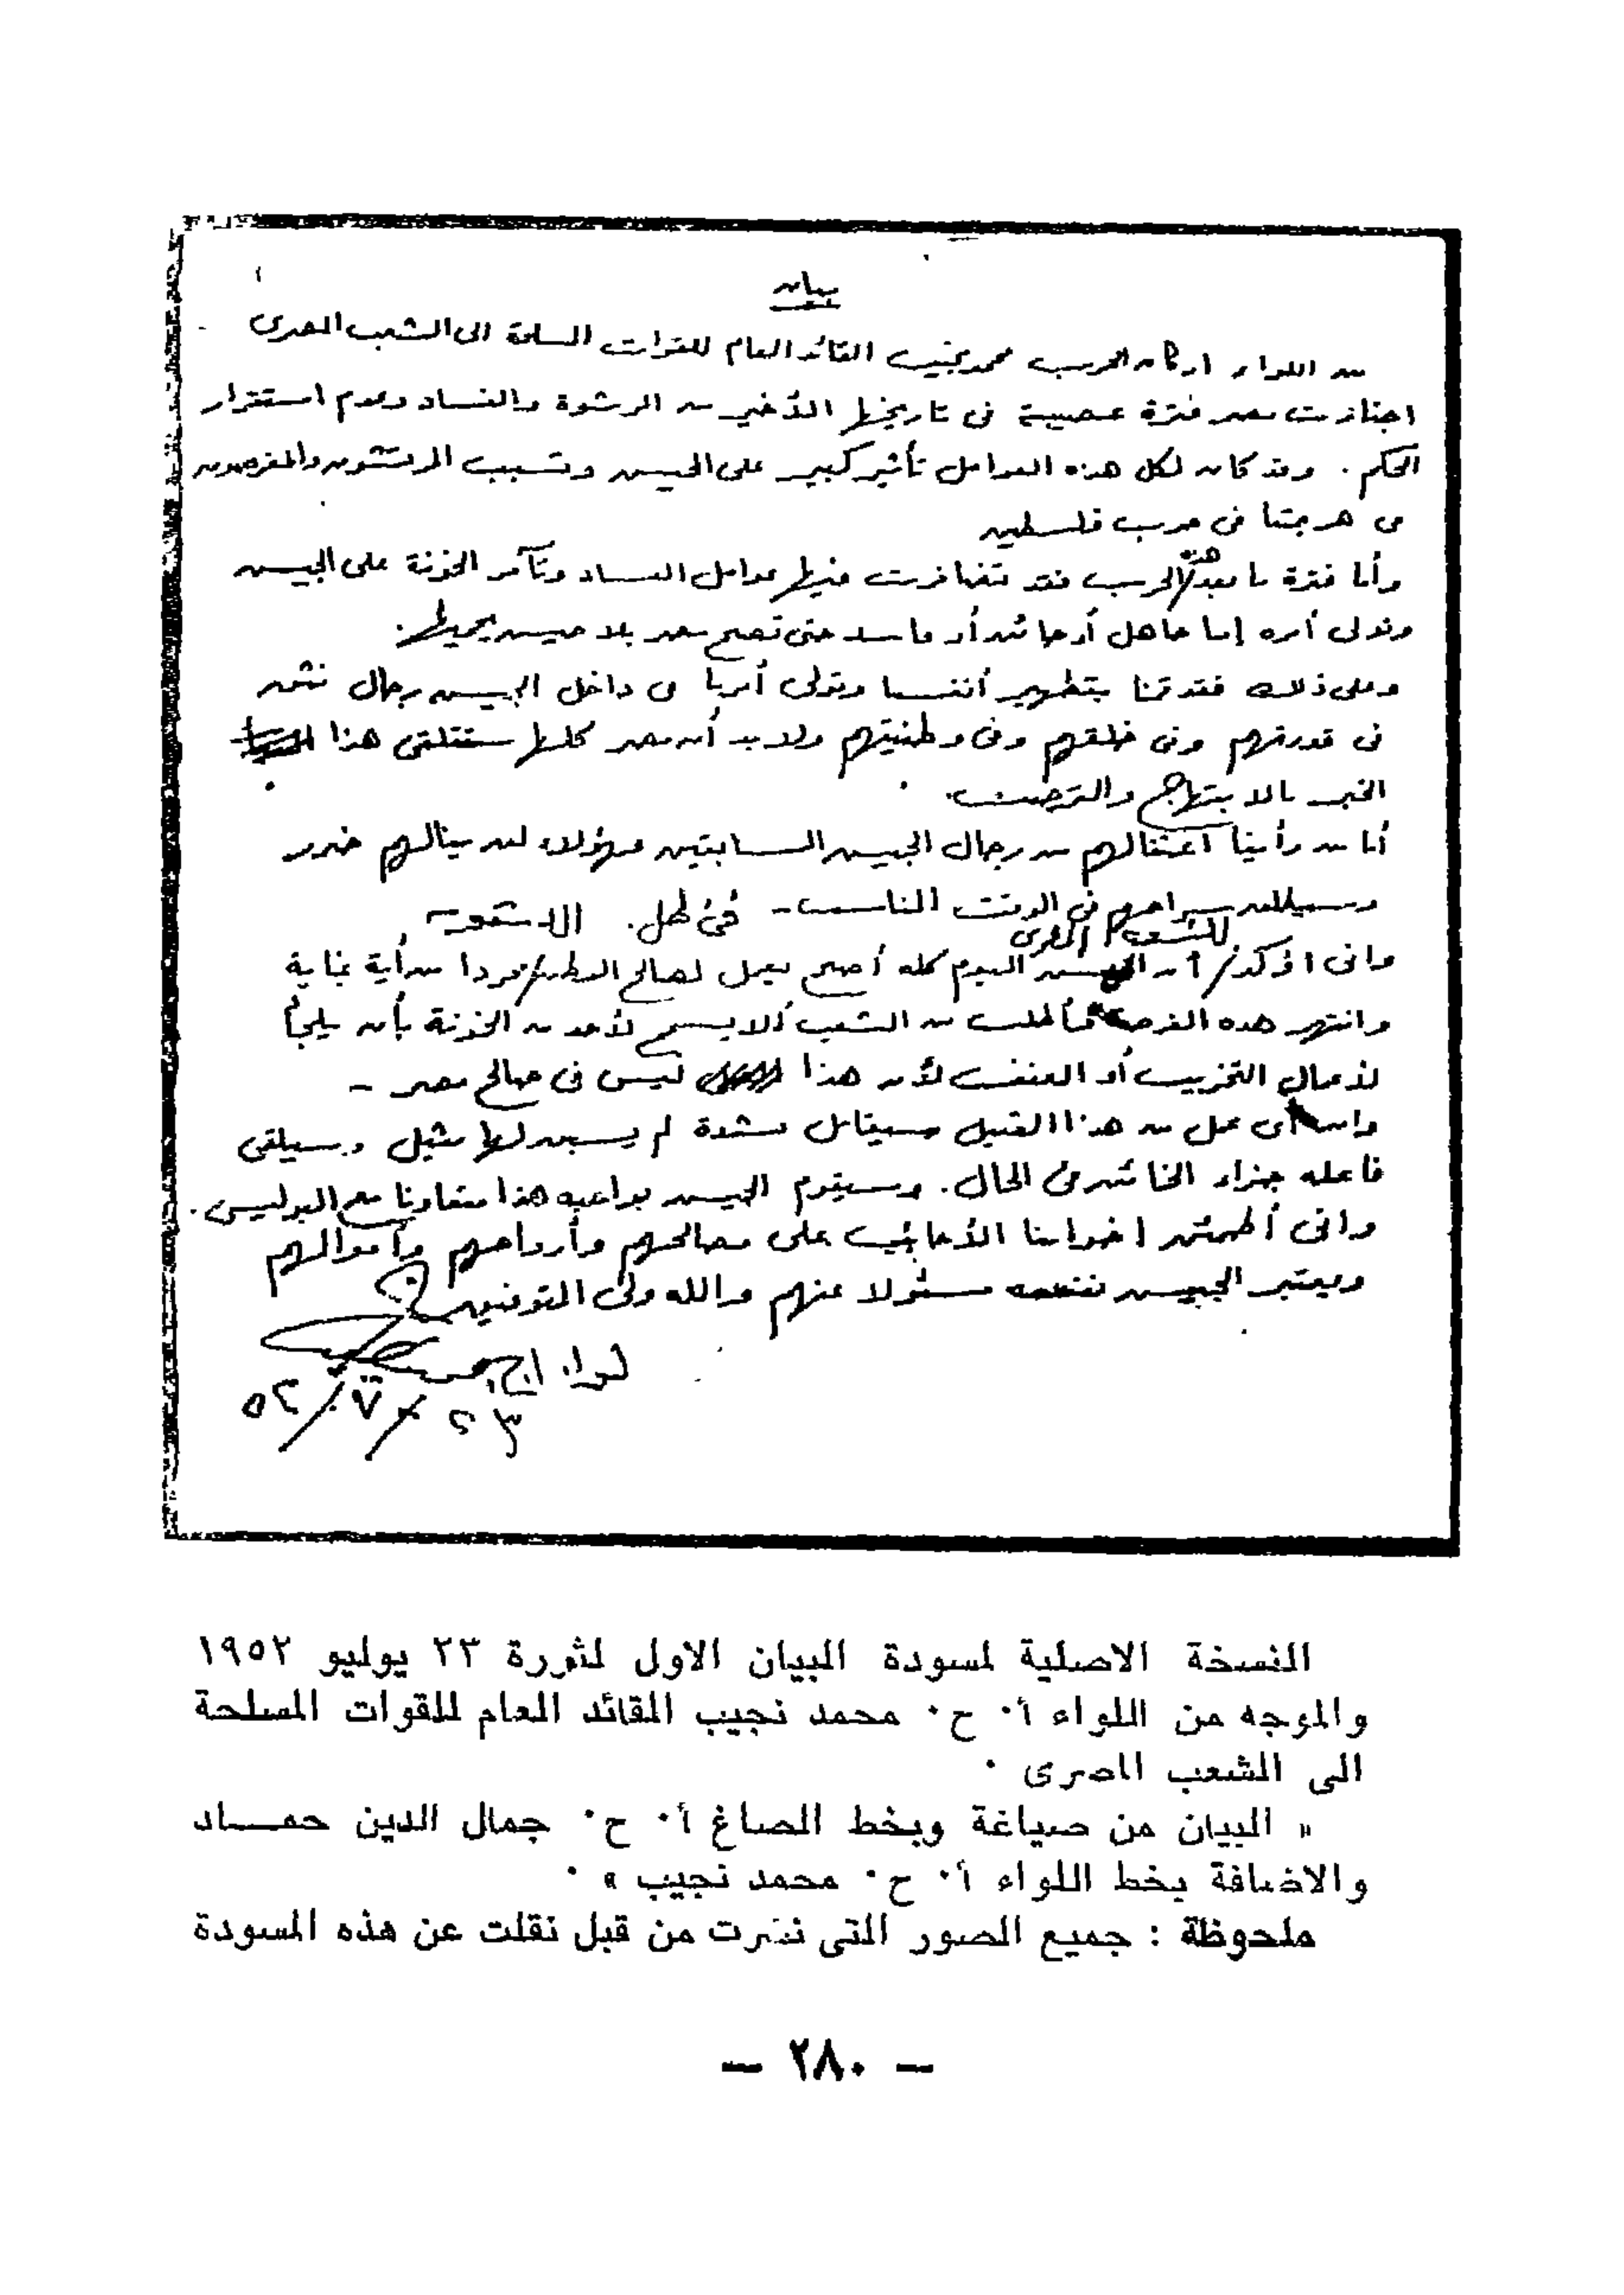 بيان
من اللواء اركان الحرب محمد نجيب القائد العام للقوات المسلحة الى الشعب المصرى
اجتازت مصر فترة عصيبة فى تاريخها الأخير من الرشوة والفساد وعدم استقرار
الحكم . وقد كان لكل هذه العوامل تأثير كبير على الجيش وتسبب المرتشون والمغرضون
فى هزيمتنا فى حرب فلسطين
وأما فترة ما بعد هذه الحرب فقد تضافرت فيها عوامل الفساد وتآمر الخونة على الجيش
وتولى أمره إما جاهل أو خائن أو فاسد حتى تصبح مصر بلا جيش يحميها .
وعلى ذلك فقد قمنا بتطهير أنفسنا وتولى أمرنا فى داخل الجيش رجال نثق
فى قدرتهم وفى خلقهم وفى وطنيتهم ولابد أن مصر كلها ستتلقى هذا
الخبر بالابتهاج والترحيب .
أما من رأينا اعتقالهم من رجال الجيش السابقين فهؤلاء لن ينالهم ضرر
وسيطلق سراحهم فى الوقت المناسب -
وانى اؤكد للشعب المصرى أن الجيش اليوم كله أصبح يعمل لصالح الوطن مجردا من أية غاية
وانتهز هذه الفرصة فأطلب من الشعب ألا يسمح لأحد من الخونة بأن يلجأ
لأعمال التخريب أو العنف لأن هذا ليس فى صالح مصر -
وان أى عمل من هذا القبيل سيقابل بشدة لم يسبق لها مثيل وسيلقى
فاعله جزاء الخائن فى الحال . وسيقوم الجيش بواجبه هذا متعاونا مع البوليس .
وانى أطمئن اخواننا الأجانب على مصالحهم وأرواحهم وأموالهم
ويعتبر الجيش نفسه مسئولا عنهم والله ولى التوفيق
لواء ا.ح.
٢٣ / ٧ / ٥٢
النسخة الاصلية لمسودة البيان الاول لثورة ٢٣ يوليو ١٩٥٢
والموجه من اللواء أ٠ ح٠ محمد نجيب القائد العام للقوات المسلحة
الى الشعب المصرى ٠
« البيان من صياغة وبخط الصاغ أ٠ ح٠ جمال الدين حمـــاد
والاضافة بخط اللواء أ٠ ح٠ محمد نجيب » ٠
ملحوظة : جميع الصور التى نشرت من قبل نقلت عن هذه المسودة
— ٢٨٠ —